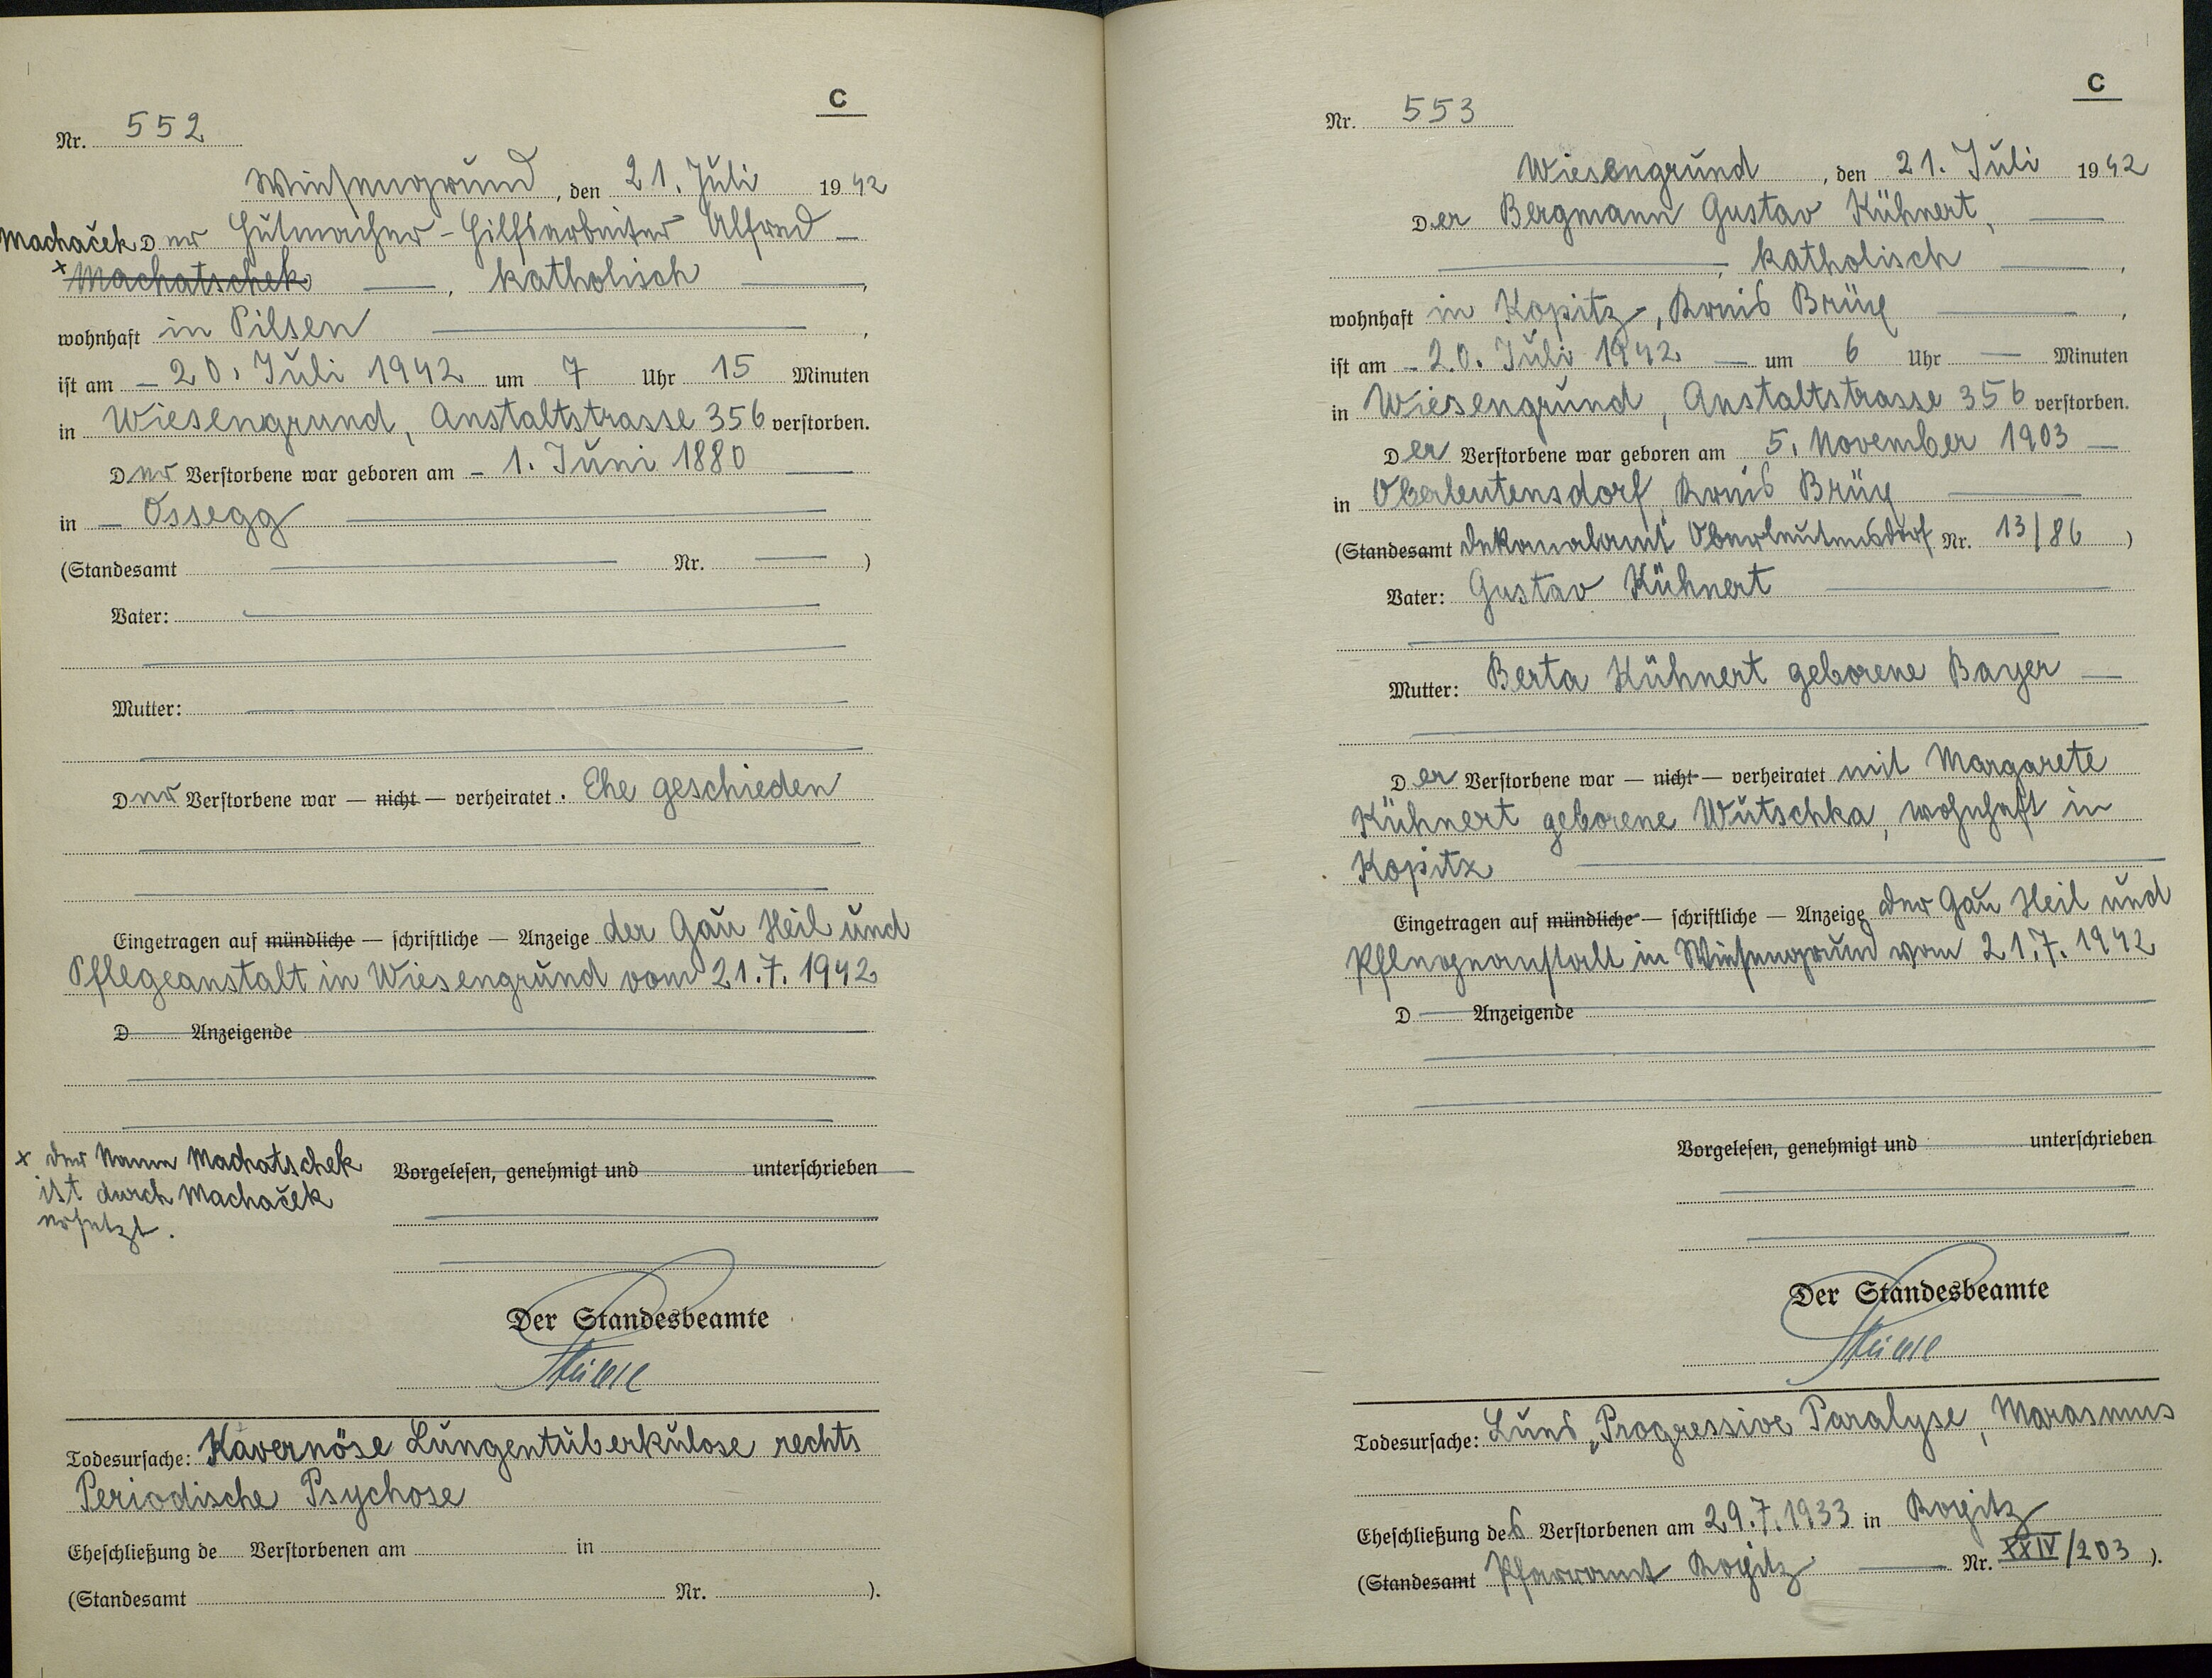 C
Nr. 552
Wiesengrund, den 21. Juli 1942
Machaček Der Hutmacher-Hilfsarbeiter Alfred
x Machatschek, katholisch,
wohnhaft in Pilsen,
ist am 20. Juli 1942 um 7 Uhr 15 Minuten
in Wiesengrund, Anstaltstrasse 356 verstorben.
Der Verstorbene war geboren am 1. Juni 1880
in Ossegg
(Standesamt Nr. )
Vater:
Mutter:
Der Verstorbene war — nicht — verheiratet. Ehe geschieden
Eingetragen auf mündliche — schriftliche — Anzeige der Gau Heil und
Pflegeanstalt in Wiesengrund vom 21.7.1942
D Anzeigende
x der Name Machatschek
ist durch Machaček
ersetzt.
Vorgelesen, genehmigt und unterschrieben
Der Standesbeamte
Todesursache: Kavernöse Lungentuberkulose rechts
Periodische Psychose
Eheschließung de Verstorbenen am in
(Standesamt Nr. ).
C
Nr. 553
Wiesengrund, den 21. Juli 1942
Der Bergmann Gustav Kühnert,
, katholisch,
wohnhaft in Kopitz, Kreis Brüx,
ist am 20. Juli 1942 um 6 Uhr — Minuten
in Wiesengrund, Anstaltstrasse 356 verstorben.
Der Verstorbene war geboren am 5. November 1903
in Oberleutensdorf, Kreis Brüx
(Standesamt Dekanalamt Oberleutensdorf Nr. 13/86)
Vater: Gustav Kühnert
Mutter: Berta Kühnert geborene Bayer
Der Verstorbene war — nicht — verheiratet mit Margarete
Kühnert geborene Wutschka, wohnhaft in
Kopitz
Eingetragen auf mündliche — schriftliche — Anzeige der Gau Heil und
Pflegeanstalt in Wiesengrund vom 21.7.1942
D Anzeigende
Vorgelesen, genehmigt und unterschrieben
Der Standesbeamte
Todesursache: Lues, Progressive Paralyse, Marasmus
Eheschließung des Verstorbenen am 29.7.1933 in Kopitz
(Standesamt Pfarramt Kopitz Nr. XXIV/203).